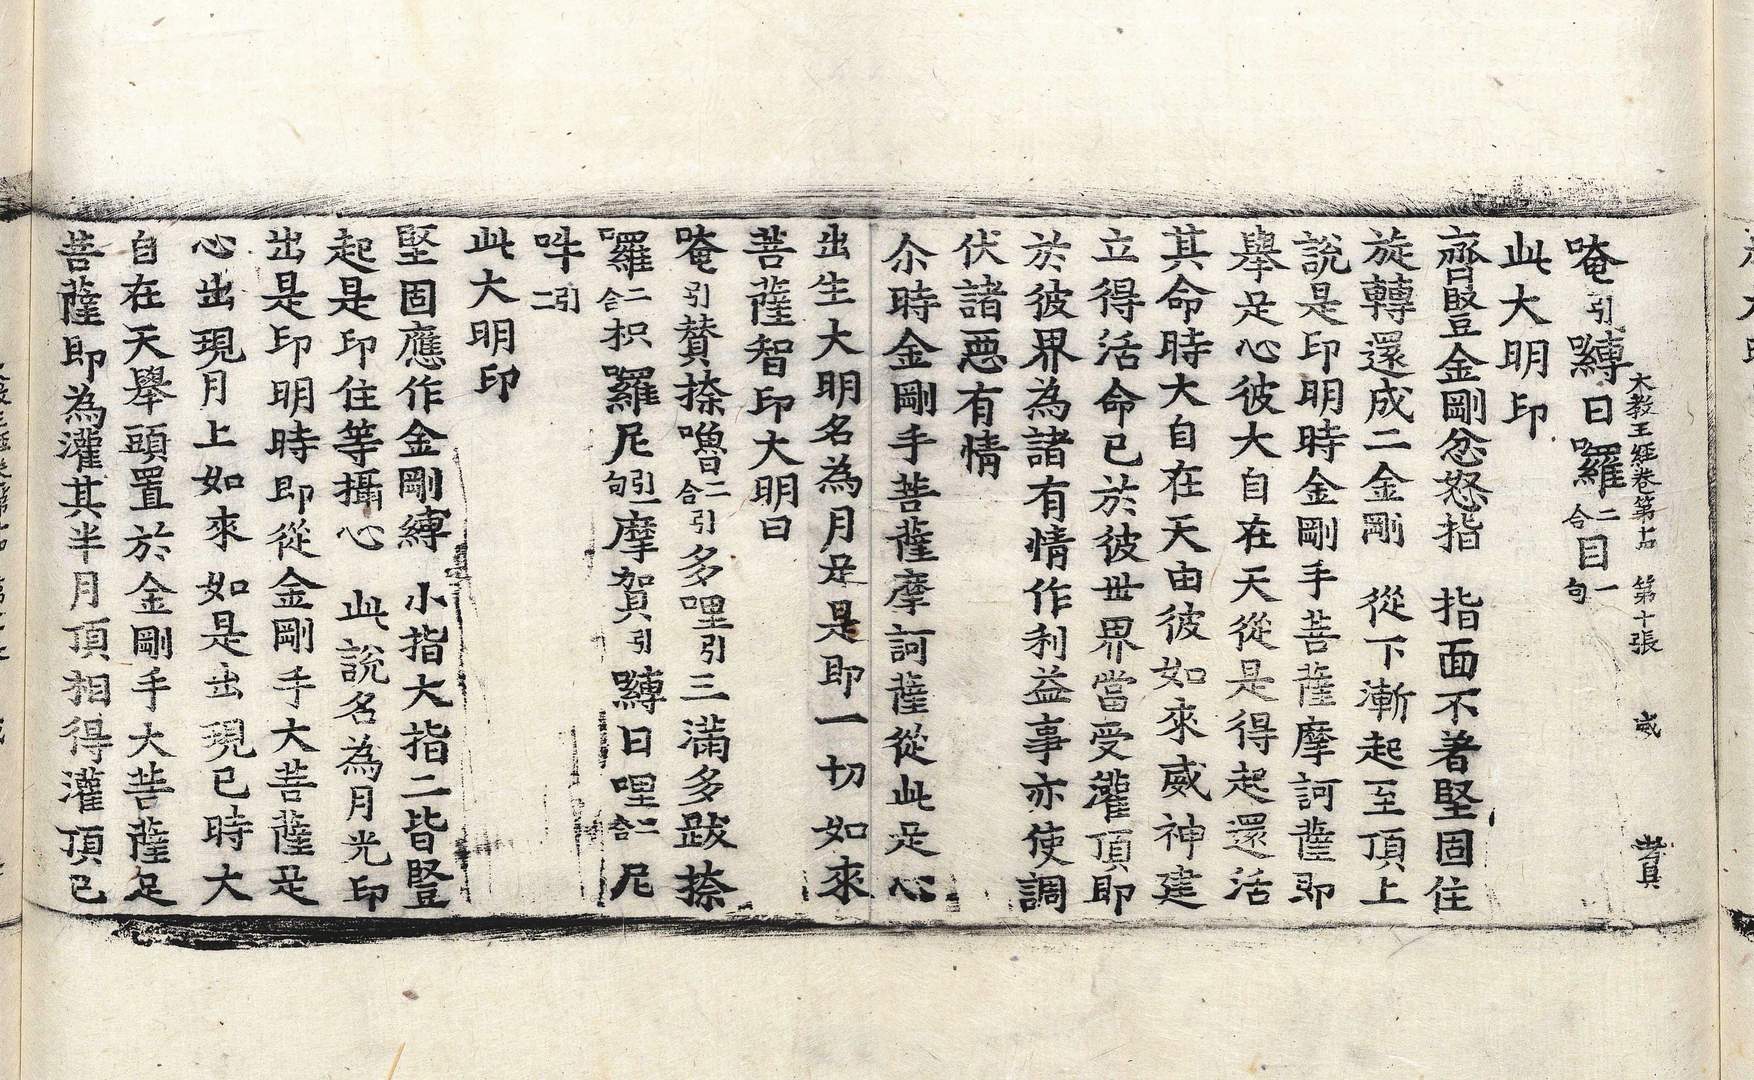 唵引嚩日囉二合目一句
大教王經卷第十 第十張
此大明印
齊豎金剛忿怒指 指面不著堅固住
旋轉還成二金剛 從下漸起至頂上
說是印明時金剛手菩薩摩訶薩即
舉足心彼大自在天從是得起還活
其命時大自在天由彼如來威神建
立得活命已於彼世界當受灌頂即
於彼界為諸有情作利益事亦使調
伏諸惡有情
尒時金剛手菩薩摩訶薩從此足心
出生大明名為月足是即一切如來
菩薩智印大明曰
唵引贊捺嚕二合引多哩引三滿多跋捺
囉二合枳囉尼引一句摩賀引嚩日哩二合尼
吽引二
此大明印
堅固應作金剛縛 小指大指二皆豎
起是印住等攝心 此說名為月光印
出是印明時即從金剛手大菩薩足
心出現月上如來如是出現已時大
自在天舉頭置於金剛手大菩薩足
菩薩即為灌其半月頂相得灌頂已